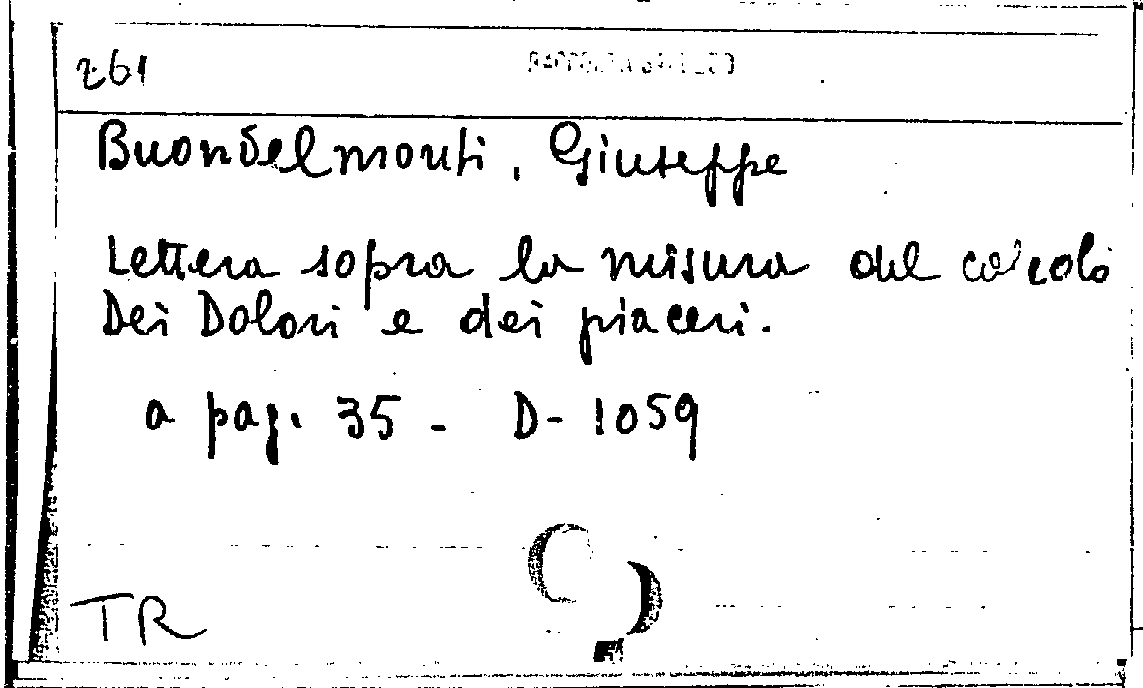 261
Buondelmonti, Giuseppe
Lettera sopra la misura del calcolo
dei Dolori e dei piaceri.
a pag. 35 - D-1059
TR